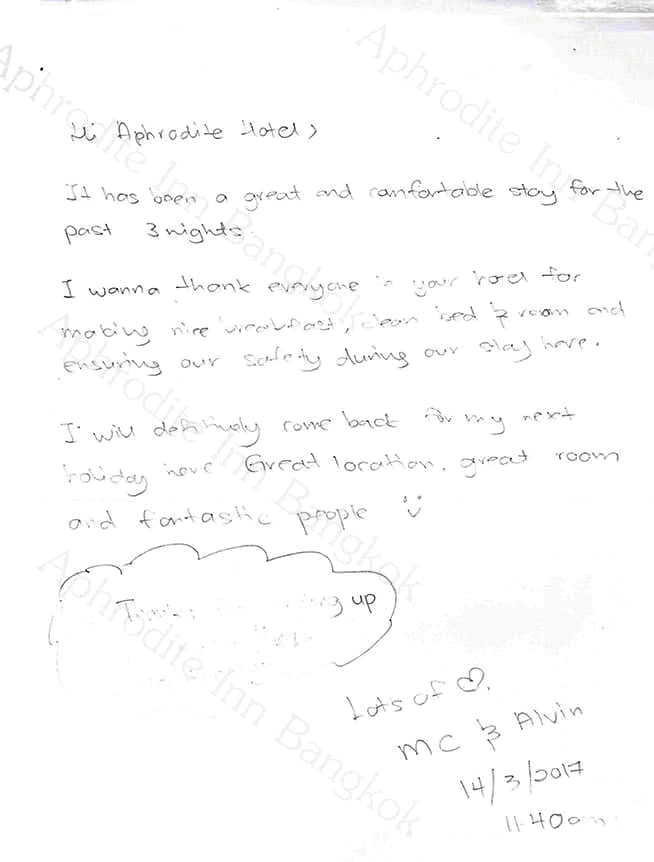 Hi Aphrodite Hotel,
It has been a great and comfortable stay for the
past 3 nights.
I wanna thank everyone in your hotel for
making nice breakfast, clean bed & room and
ensuring our safety during our stay here.
I will definitively come back for my next
holiday here Great location, great room
and fantastic people
up
Lots of
MC & Alvin
14/3/2017
11.40am
Aphrodite Inn Bangkok
Aphrodite Inn Bangkok
Aphrodite Inn Bangkok
Aphrodite Inn Bangkok